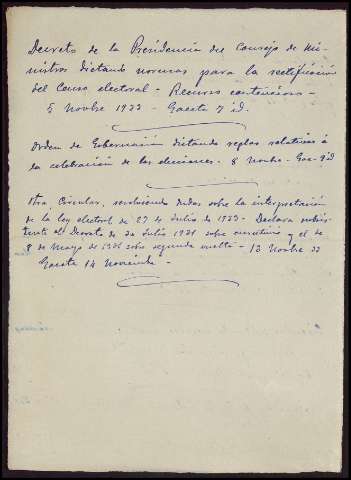 Decreto de la Presidencia del Consejo de Mi-
nistros dictando normas para la rectificación
del Censo electoral - Recurso contencioso -
5 Novbre 1933 - Gaceta 7 id.
Orden de Gobernación dictando reglas relativas á
la celebración de las elecciones. 8 Novbre - Gac - 9 id
Otra, Circular, resolviendo dudas sobre la interpretación
de la ley electoral de 27 de Julio de 1933 - Declara subsis-
tente el Decreto de Julio 1931 sobre y el de
8 de Mayo de 1931 sobre segunda vuelta - 13 Novbre 33
Gaceta 14 Noviembre -